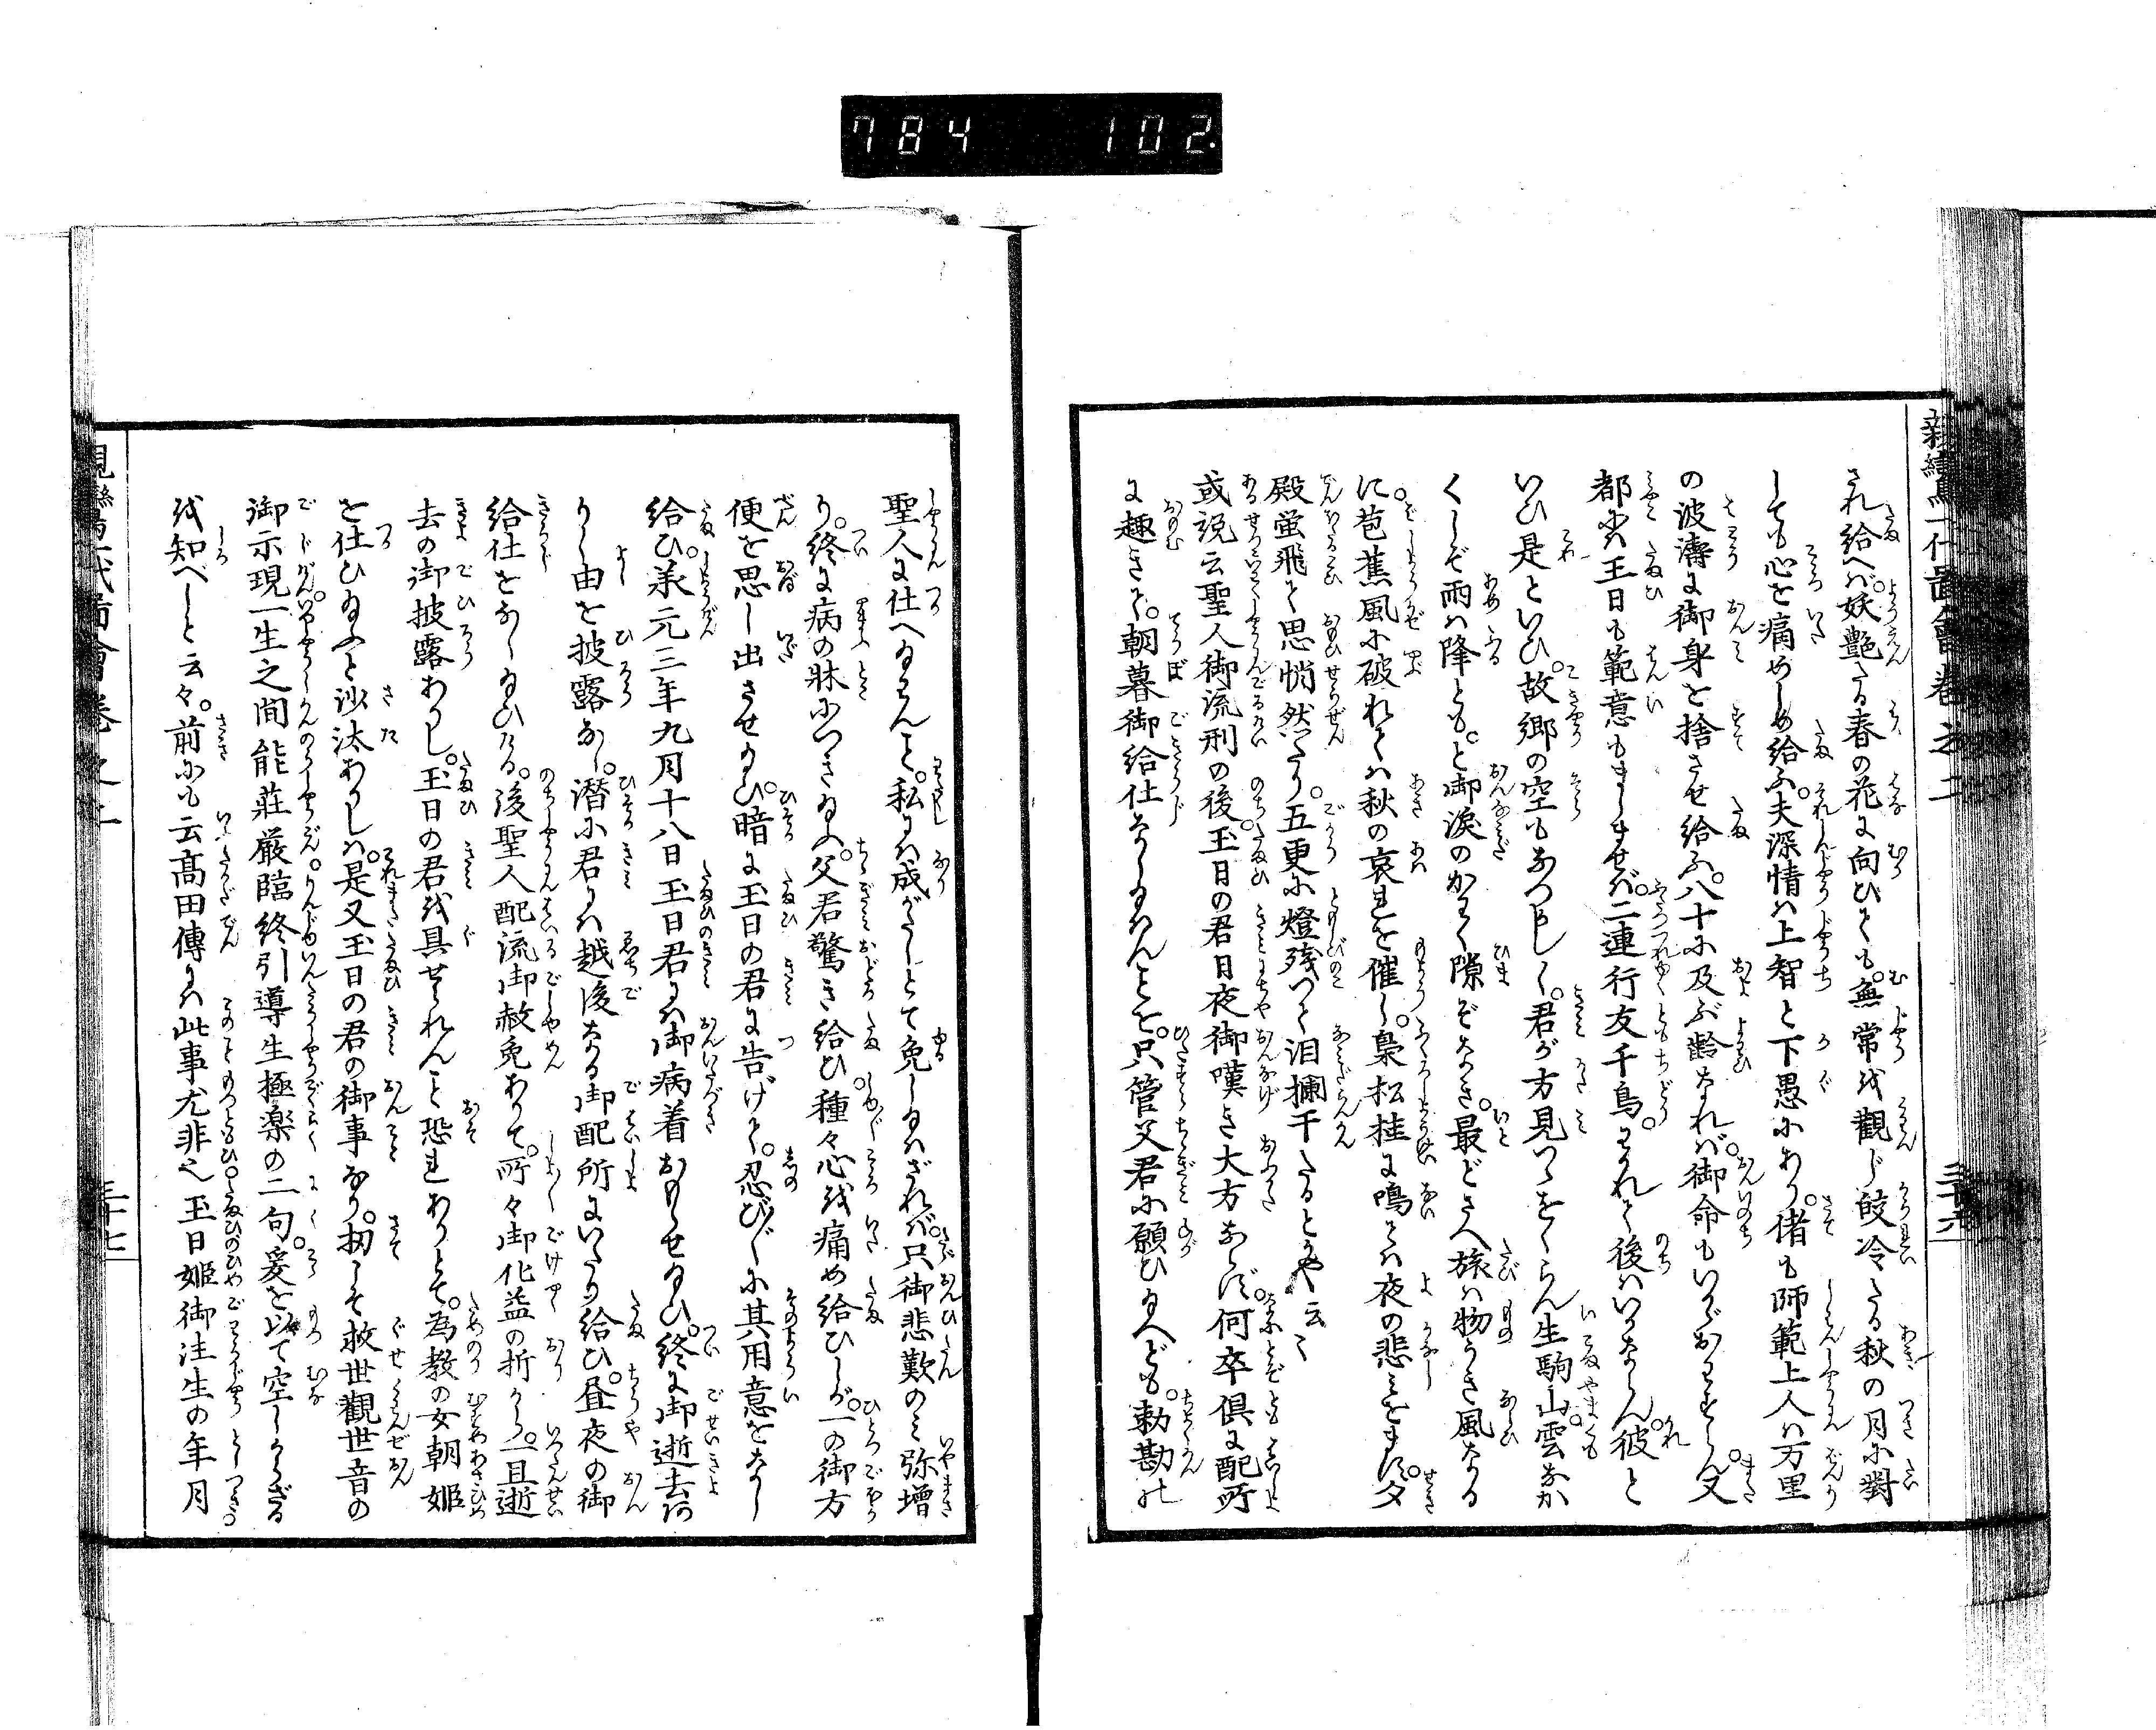 784 102.
親鸞聖人一代圖會卷之二
され給へば。妖艶たる春の花に向ひても。無常を觀じ皎冷たる秋の月に對
しても心を痛めしめ給ふ。夫深情は上智と下愚にあり。偖も師範上人は万里
の波濤に御身を捨させ給ふ。八十に及ぶ齢なれば。御命もいかゞおはすらん。又
都出玉日も範意もましませば。二連行友千鳥。わかれて後はいかならん。彼と
いひ是といひ。故郷の空もなつかしく。君が方見つゝをくらん生駒山。雲なか
くしぞ雨は降とも。と御涙のかわく隙ぞなき。最どさへ旅は物うき風なる
に。芭蕉風に破れては秋の哀れを催し。梟松桂に鳴ては夜の悲みをます。夕
殿蛍飛て思悄然たり。五更に燈残つて泪攔干たるとかや云々
或説云聖人御流刑の後。玉日の君日夜御嘆き大方ならず。何卒倶に配所
に趣きて。朝暮御給仕なしなんことを。只管父君に願ひ給へども。勅勘の
聖人に仕へ給はんこと。私には成がたしとて免し給はざれば。只御悲歎のみ弥増
り。終に病の牀につき給ふ。父君驚き給ひ種々心を痛め給ひしが。一の御方
便を思し出させ給ひ。暗に玉日の君に告げて。忍び〲に其用意をなし
給ひ。承元三年九月十八日玉日君には御病着おもらせ給ひ。終に御逝去ある
由を披露なし。潜に君には越後なる御配所にいたり給ひ。昼夜の御
給仕をなし給ひける。後聖人配流御赦免ありて。所々御化益の折から。一旦逝
去の御披露ありし。玉日の君を具せられんと恐れありとて。為教の女朝姫
を仕ひ給ふと沙汰ありしは。是又玉日の君の御事なり。扨こそ救世觀世音の
御示現一生之間能莊厳臨終引導生極楽の二句。爰を以て空しからざる
を知べしと云々。前にも云高田傳には此事尤非也玉日姫御注生の年月
親鸞聖人一代圖會卷之二
三十七